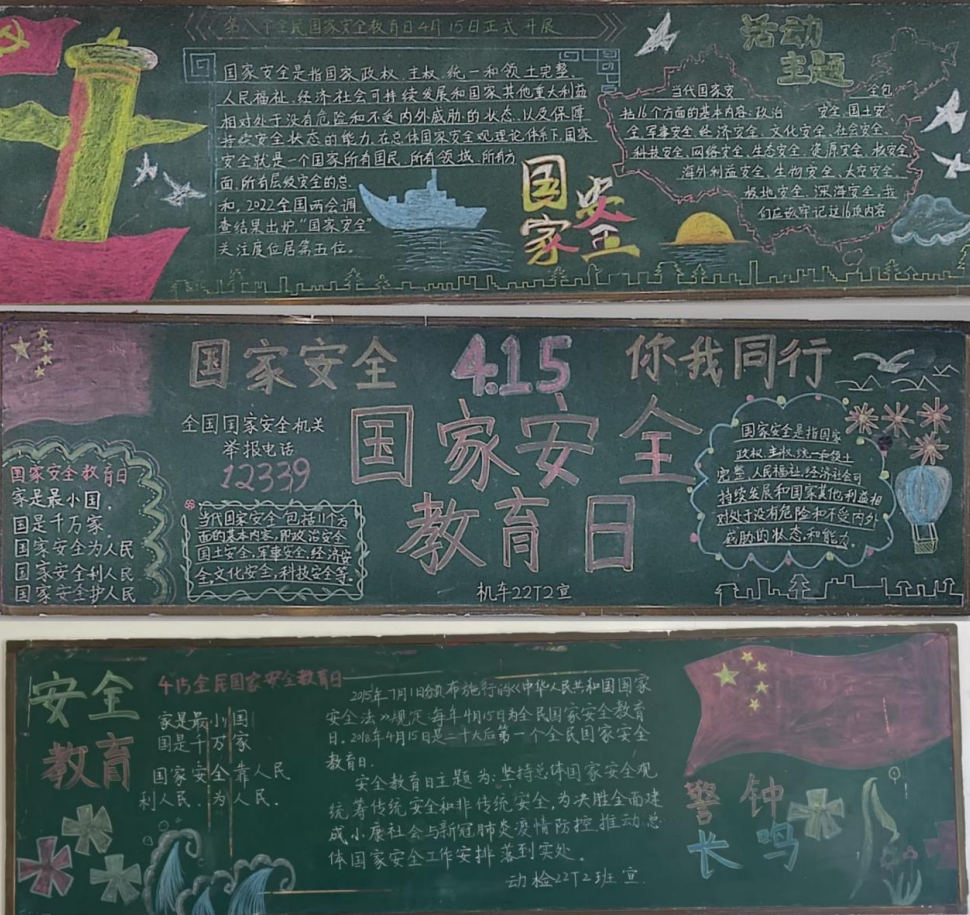 第八个全民国家安全教育日4月15日正式开展
国家安全是指国家政权、主权、统一和领土完整、
人民福祉、经济社会可持续发展和国家其他重大利益
相对处于没有危险和不受内外威胁的状态,以及保障
持续安全状态的能力,在总体国家安全观理论体系下,国家
安全就是一个国家所有国民、所有领域、所有方
面、所有层级安全的总
和,2022全国两会调
查结果出炉,“国家安全”
关注度位居第五位。
国家安全
活动
主题
当代国家安 全包
括16个方面的基本内容:政治 安全、国土安
全、军事安全、经济安全、文化安全、社会安全、
科技安全、网络安全、生态安全、资源安全、核安全
海外利益安全、生物安全、太空安全、
极地安全、深海安全,我
们应该牢记这16项内容
国家安全 4.15 你我同行
全国国家安全机关
举报电话
12339
国家安全
教育日
机车22T2宣
国家安全教育日
家是最小国,
国是千万家,
国家安全为人民
国家安全利人民
国家安全护人民
当代国家安全包括11个方
面的基本内容,即政治安全
国土安全,军事安全,经济安
全,文化安全,科技安全等。
国家安全是指国家
政权、主权、统一和领土
完整、人民福祉、经济社会可
持续发展和国家其他利益相
对处于没有危险和不受内外
威胁的状态和能力。
安全
教育
4·15全民国家安全教育日
家是最小国
国是千万家
国家安全靠人民
利人民、为人民.
2015年7月1日颁布施行的《中华人民共和国国家
安全法》规定每年4月15日为全民国家安全教育
日。2018年4月15日是二十大后第一个全民国家安全
教育日.
安全教育日主题为:坚持总体国家安全观
统筹传统安全和非传统安全,为决胜全面建
成小康社会与新冠肺炎疫情防控推动总
体国家安全工作安排落到实处。
动检22T2班宣.
警钟
长鸣